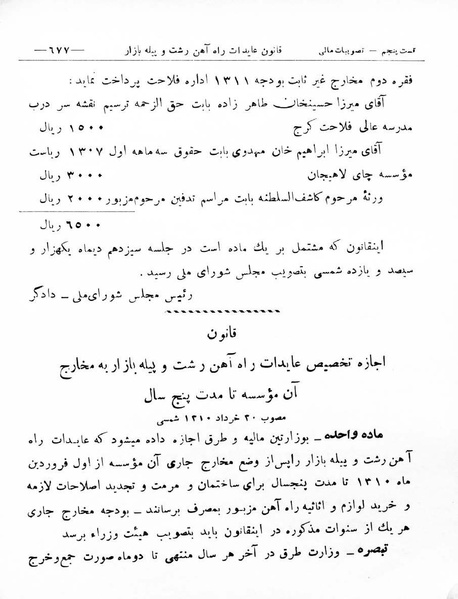 قسمت پنجم — تصویبات مالی قانون عایدات راه آهن رشت و پیله بازار —٦٧٧—
فقره دوم مخارج غیر ثابت بودجه ۱۳۱۱ اداره فلاحت پرداخت نماید:
آقای میرزا حسینخان طاهر زاده بابت حق الزحمه ترسیم نقشه سر درب
مدرسه عالی فلاحت کرج ۱۵۰۰ ریال
آقای میرزا ابراهیم خان مهدوی بابت حقوق سه ماهه اول ۱۳۰۷ ریاست
مؤسسه چای لاهیجان ۳۰۰۰ ریال
ورثهٔ مرحوم کاشف السلطنه بابت مراسم تدفین مرحوم مزبور ۲۰۰۰ ریال
٦٥٠٠ ریال
اینقانون که مشتمل بر یك ماده است در جلسه سیزدهم دیماه یکهزار و
سیصد و یازده شمسی بتصویب مجلس شورای ملی رسید.
رئیس مجلس شورای ملی ــ دادگر
قانون
اجازه تخصیص عایدات راه آهن رشت و پیله بازار به مخارج
آن مؤسسه تا مدت پنج سال
مصوب ۲۰ خرداد ۱۳۱۰ شمسی
ماده واحده ــ بوزارتین مالیه و طرق اجازه داده میشود که عایدات راه
آهن رشت و پیله بازار را پس از وضع مخارج جاری آن مؤسسه از اول فروردین
ماه ۱۳۱۰ تا مدت پنجسال برای ساختمان و مرمت و تجدید اصلاحات لازمه
و خرید لوازم و اثاثیه راه آهن مزبور بمصرف برسانند ــ بودجه مخارج جاری
هر یك از سنوات مذکوره در اینقانون باید بتصویب هیئت وزراء برسد
تبصره ــ وزارت طرق در آخر هر سال منتهی تا دوماه صورت جمع و خرج